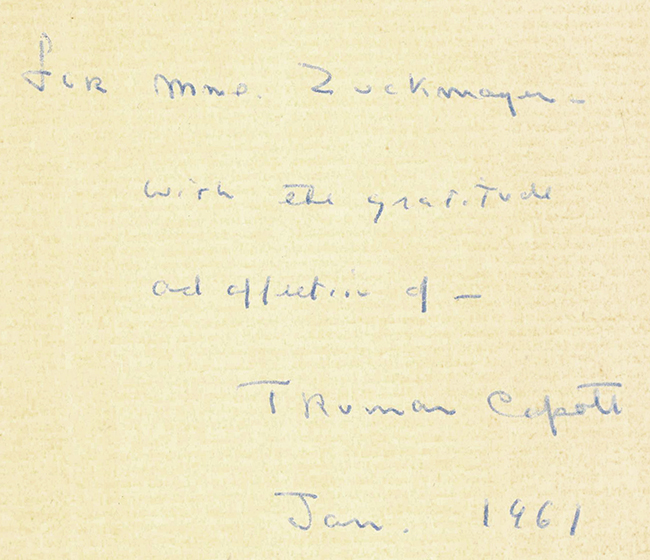 For Mme. Zuckmayer -
with the gratitude
and affection of —
Truman Capote
Jan. 1961